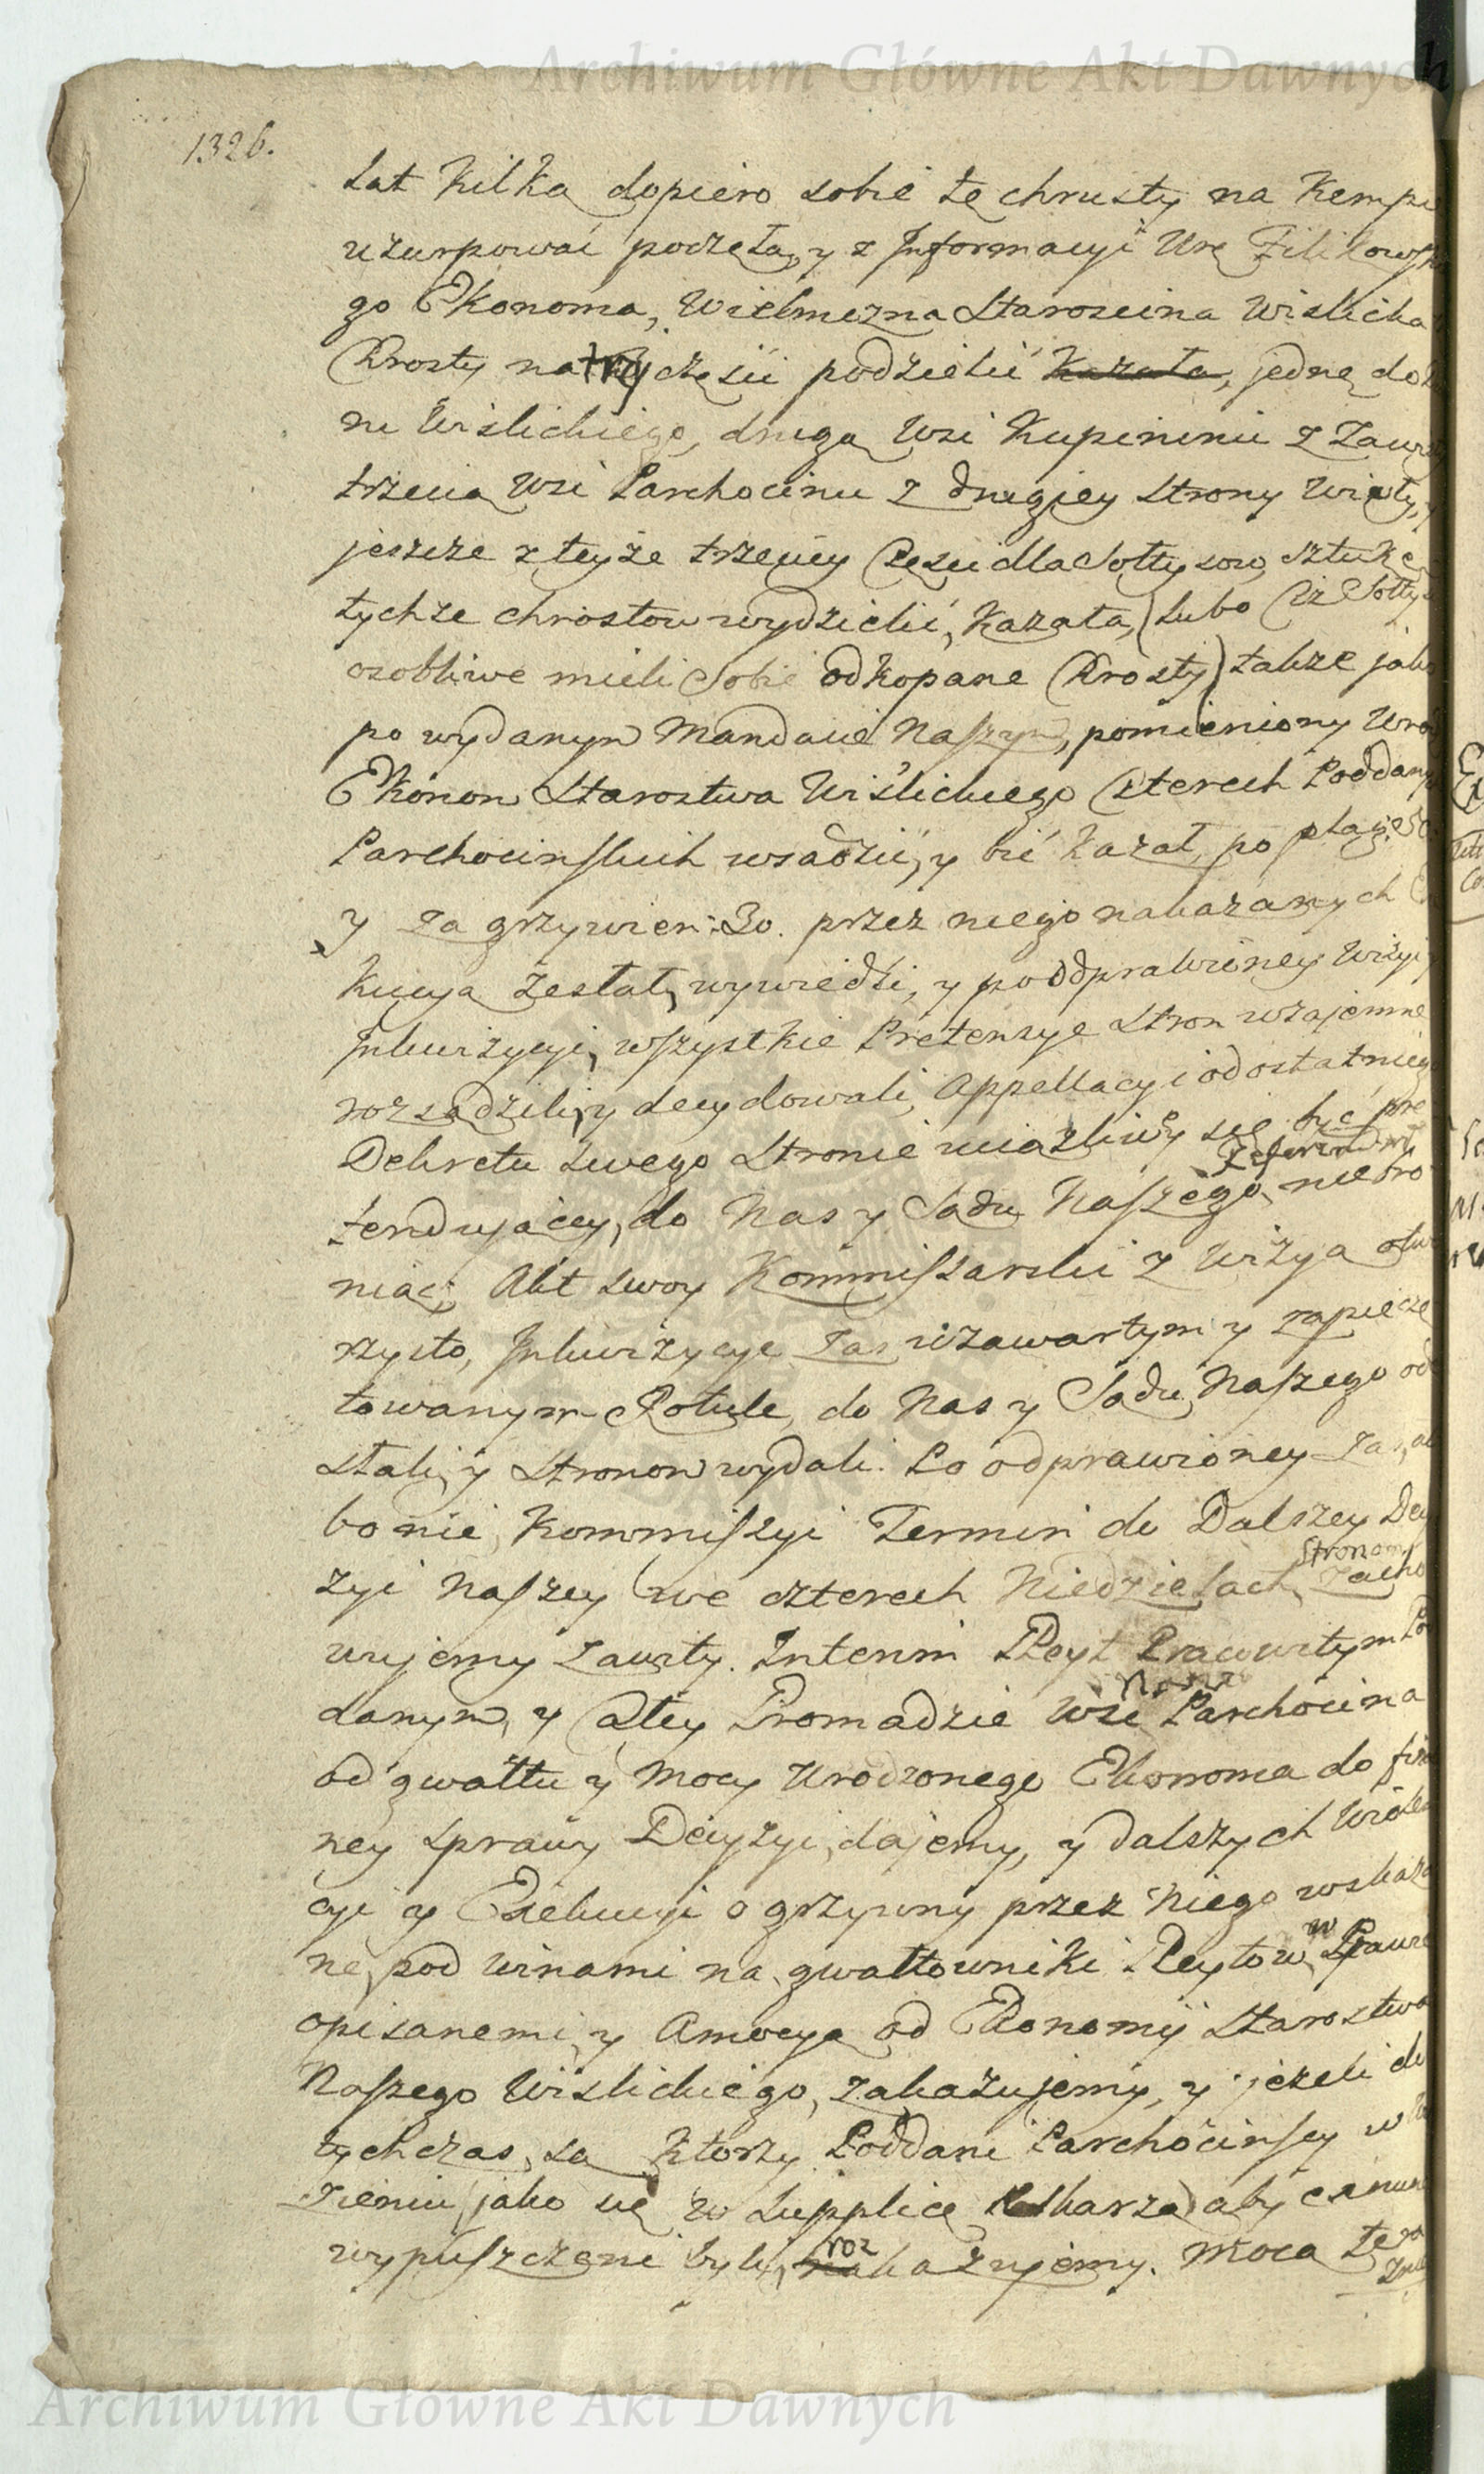 Archiwum Główne Akt Dawnych
1326.
Lat kilka dopiero sobie te chrusty na Kempi
uzurpować poczęła, y z Informacyi Ure Filikows
go Ekonoma, Wielmozna Staroscina Wislicka
Chrosty na try częsci podzielić kazała, jednę do
nu Wislickiego, drugą Wsi Kupieninu z Zaw
trzecią Wsi Parchocinu z drugiey strony Wisły, y
jeszcze z teyże trzeciey Częsci dla Sołtysow, sztukę
tychże chrostow wydzielić, kazała, (lubo Ciż Sołty
osobliwe mieli Sobie odkopane Chrosty) także jako
po wydanym Mandacie Naszym, pomieniony Uro
Ekonom Starostwa Wiślickiego Czterech Poddany
Parchocinskich wsadzić, y bić kazał, po plag: 50:
y za grzywien: 30. przez niego nakazanych
kucyą zesłał, wywiedzi, y po odprawioney Wizyi
Inkwizycyi, wszystkie Pretensye Stron wzajemne
rozsądzili, y decydowali, Appellacyi od ostatnieg
Dekretu swego Stronie uciążliwey się być pre
tendującey, do Nas y Sądu Naszego Referendar niebro
niąc, Akt swoy Kommissarski z Wizyą otw
rzysto, Inkwizycye zas w zawartym y zapieczę
towanym Rotule, do Nas y Sądu Naszego od
słali, y Stronom wydali. Po odprawioney zas, al
bo nie, Kommissyi Termin do Dalszey Decy
zyi Naszey we czterech Niedzielach, Stronom zacho
wujemy zawity. Interim Gleyt Pracowitym Pod
danym, y całey Gromadzie Wsi Nasze Parchocina
od gwałtu y Mocy Urodzonego Ekonoma do fin
ney sprawy Decyzyi, dajemy, y dalszych Wiole
cyi y Exekucyi o grzywny przez niego wskaza
ne, pod winami na gwałtowniki Gleytow w Prawie
opisanemi, y Amocyą od Ekonomii Starostwa
Naszego Wislickiego, zakazujemy, y jeżeli do
tychczas są ktorzy Poddani Parchocinscy w
zieniu, jako się w Supplice skarzą, aby
wypuszczeni byli, rozkazujemy. Mocą
Archiwum Główne Akt Dawnych